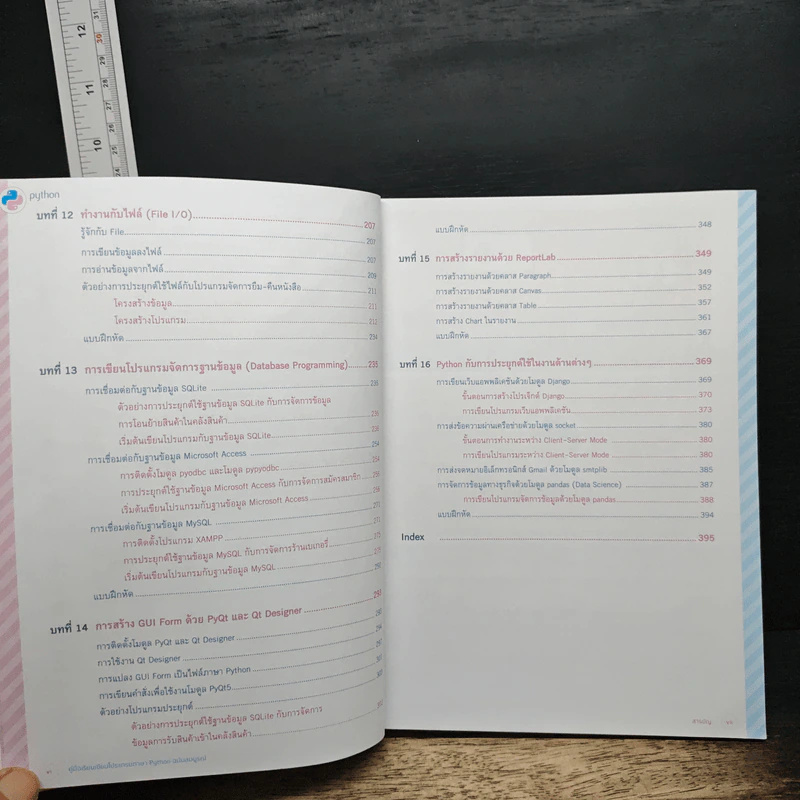 python
บทที่ 12 ทำงานกับไฟล์ (File I/O) 207
รู้จักกับ File 207
การเขียนข้อมูลลงไฟล์ 207
การอ่านข้อมูลจากไฟล์ 209
ตัวอย่างการประยุกต์ใช้ไฟล์กับโปรแกรมจัดการยืม-คืนหนังสือ 211
โครงสร้างข้อมูล 211
โครงสร้างโปรแกรม 212
แบบฝึกหัด 234
บทที่ 13 การเขียนโปรแกรมจัดการฐานข้อมูล (Database Programming) 235
การเชื่อมต่อกับฐานข้อมูล SQLite 235
ตัวอย่างการประยุกต์ใช้ฐานข้อมูล SQLite กับการจัดการข้อมูล
การโอนย้ายสินค้าในคลังสินค้า 236
เริ่มต้นเขียนโปรแกรมกับฐานข้อมูล SQLite
การเชื่อมต่อกับฐานข้อมูล Microsoft Access 254
การติดตั้งโมดูล pyodbc และโมดูล pypyodbc 254
การประยุกต์ใช้ฐานข้อมูล Microsoft Access กับการจัดการสมัครสมาชิก
เริ่มต้นเขียนโปรแกรมกับฐานข้อมูล Microsoft Access
การเชื่อมต่อกับฐานข้อมูล MySQL
การติดตั้งโปรแกรม XAMPP
การประยุกต์ใช้ฐานข้อมูล MySQL กับการจัดการร้านเบเกอรี่
เริ่มต้นเขียนโปรแกรมกับฐานข้อมูล MySQL
แบบฝึกหัด
บทที่ 14 การสร้าง GUI Form ด้วย PyQt และ Qt Designer 293
การติดตั้งโมดูล PyQt และ Qt Designer
การใช้งาน Qt Designer
การแปลง GUI Form เป็นไฟล์ภาษา Python
การเขียนคำสั่งเพื่อใช้งานโมดูล PyQt5
ตัวอย่างโปรแกรมประยุกต์
ตัวอย่างการประยุกต์ใช้ฐานข้อมูล SQLite กับการจัดการ
ข้อมูลการรับสินค้าเข้าในคลังสินค้า
คู่มือเรียนเขียนโปรแกรมภาษา Python ฉบับสมบูรณ์
แบบฝึกหัด 348
บทที่ 15 การสร้างรายงานด้วย ReportLab 349
การสร้างรายงานด้วยคลาส Paragraph 349
การสร้างรายงานด้วยคลาส Canvas 352
การสร้างรายงานด้วยคลาส Table 357
การสร้าง Chart ในรายงาน 361
แบบฝึกหัด 367
บทที่ 16 Python กับการประยุกต์ใช้ในงานด้านต่างๆ 369
การเขียนเว็บแอพพลิเคชันด้วยโมดูล Django 369
ขั้นตอนการสร้างโปรเจ็กต์ Django 370
การเขียนโปรแกรมเว็บแอพพลิเคชัน 373
การส่งข้อความผ่านเครือข่ายด้วยโมดูล socket 380
ขั้นตอนการทำงานระหว่าง Client-Server Mode 380
การเขียนโปรแกรมระหว่าง Client-Server Mode 380
การส่งจดหมายอิเล็กทรอนิกส์ Gmail ด้วยโมดูล smtplib 385
การจัดการข้อมูลทางธุรกิจด้วยโมดูล pandas (Data Science) 387
การเขียนโปรแกรมจัดการข้อมูลด้วยโมดูล pandas 388
แบบฝึกหัด 394
Index 395
สารบัญ
12
11
10
31
30
29
28
27
26
25
24